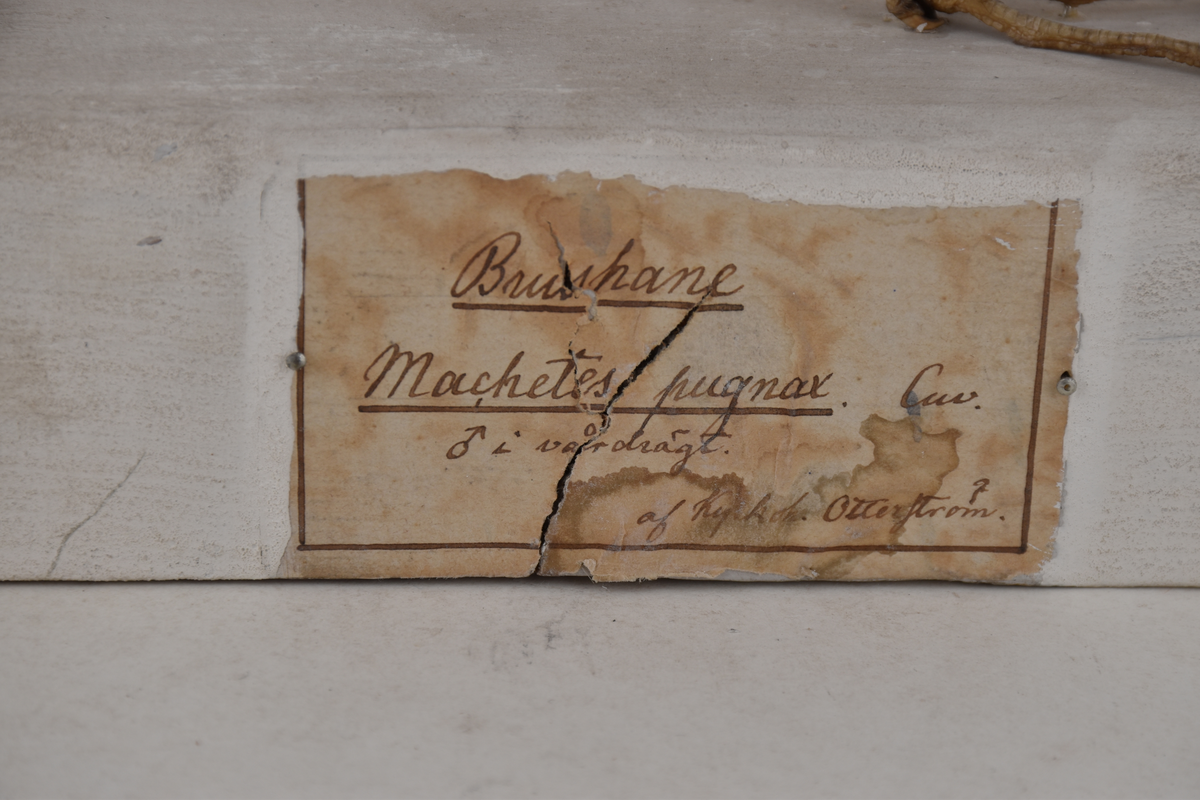 Brushane
Machetes pugnax. Cuv.
♂ i vårdrägt.
af Kyrkoh. Otterström.